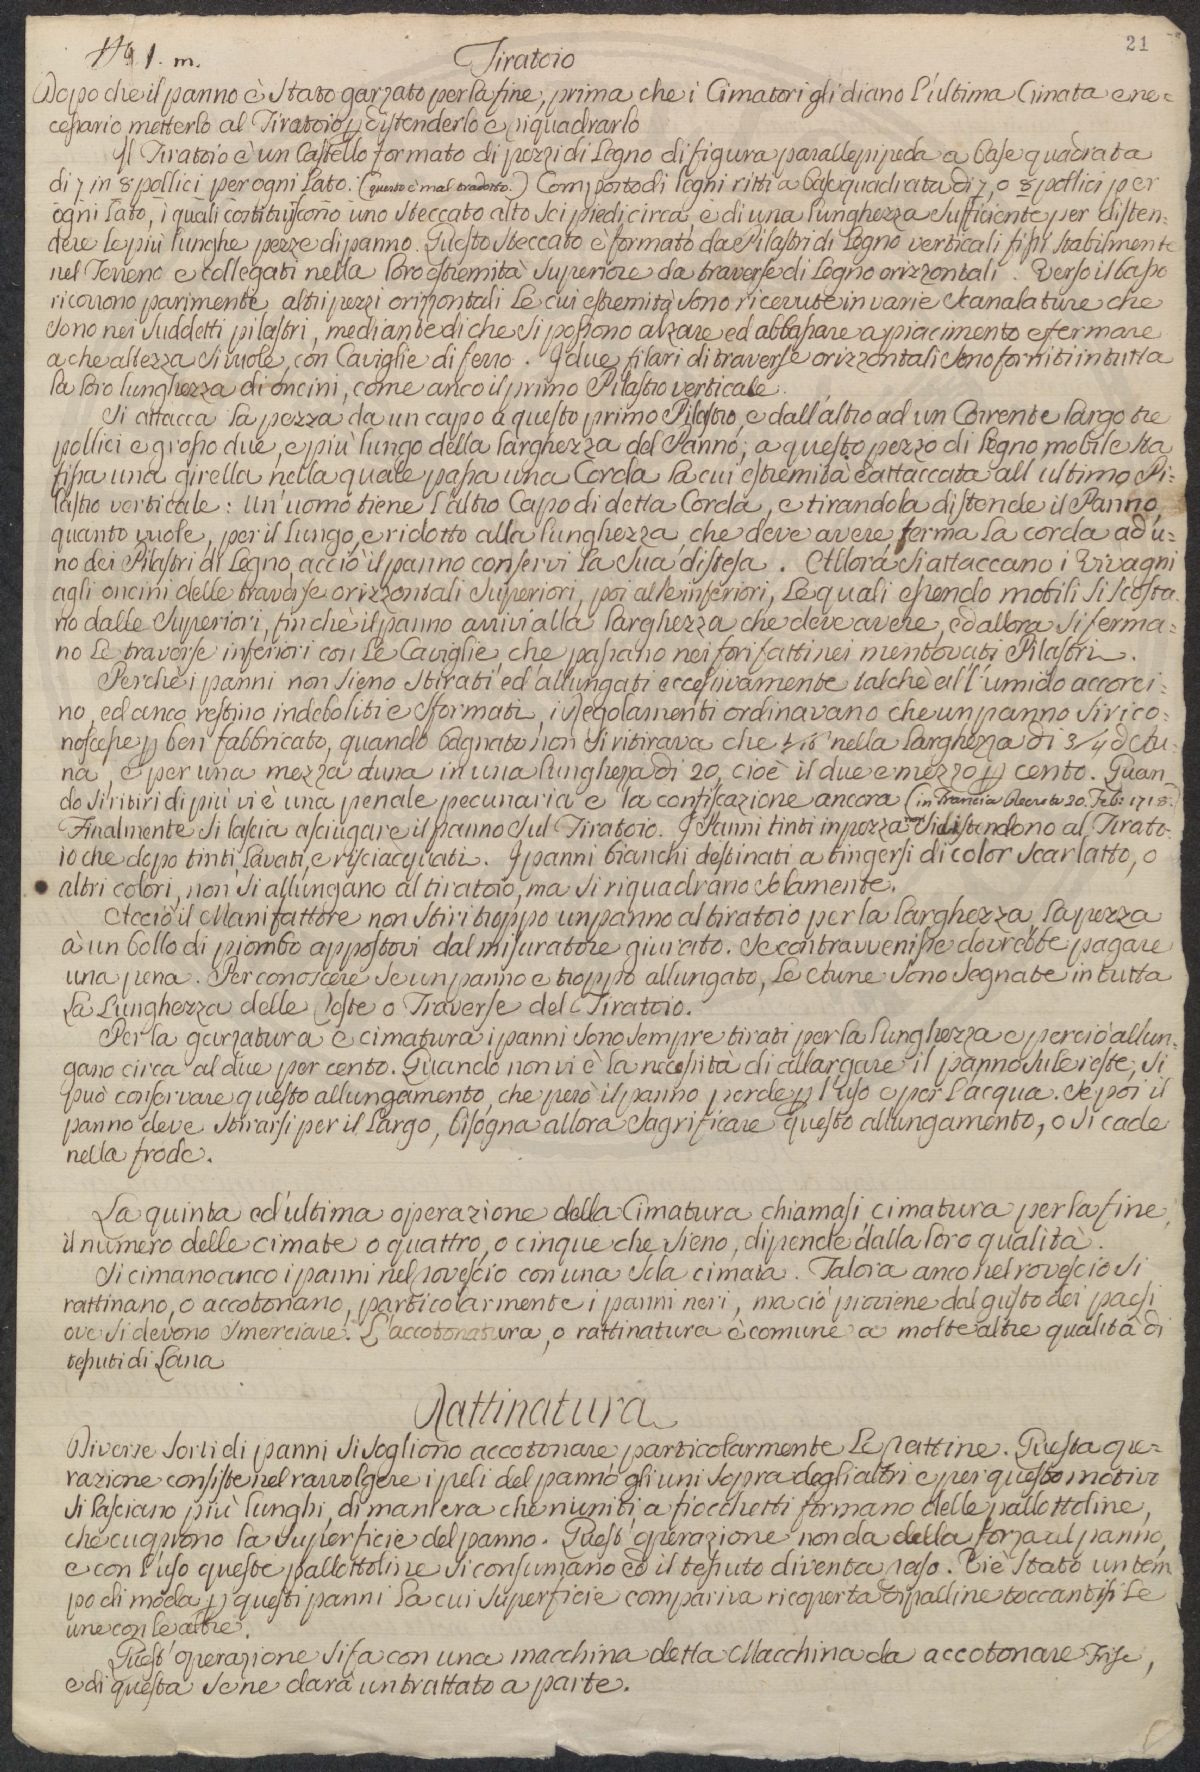 21
N.º 1. m.
Tiratoio
Dopo che il panno è stato garzato per la fine, prima che i Cimatori gli diano l'ultima Cimata e ne-
cessario metterlo al Tiratoio p distenderlo e riquadrarlo
Il Tiratoio è un Castello formato di pezzi di Legno di figura parallepipeda a base quadrata
di 7 in 8 pollici per ogni Lato. (questo è mal tradotto.) Composto di legni ritti a base quadrata di 7, o 8 pollici per
ogni Lato, i quali costituiscono uno steccato alto sei piedi circa, e di una lunghezza sufficiente per disten-
dere le più lunghe pezze di panno. Questo steccato è formato da Pilastri di Legno verticali fissi stabilmente
nel Terreno e collegati nella loro estremità superiore da traverse di Legno orizzontali. Verso il basso
ricorrono parimente altri pezzi orizzontali le cui estremità sono ricevute in varie scanalature che
sono nei suddetti pilastri, mediante di che si possono alzare ed abbassare a piacimento e fermare
a che altezza si vuole, con Caviglie di ferro. I due filari di traverse orizzontali sono forniti in tutta
la loro lunghezza di oncini, come anco il primo Pilastro verticale.
Si attacca la pezza da un capo a questo primo Pilastro, e dall'altro ad un Corrente largo tre
pollici e grosso due, e più lungo della larghezza del Panno; a questo pezzo di legno mobile sta
fissa una girella nella quale passa una Corda la cui estremità è attaccata all'ultimo Pi-
lastro verticale: Un'uomo tiene l'altro Capo di detta Corda, e tirandola distende il Panno,
quanto vuole, per il lungo, e ridotto alla lunghezza, che deve avere, ferma la corda ad u-
no dei Pilastri di Legno, acciò il panno conservi la sua distesa. Allora si attaccano i vivagni
agli oncini delle traverse orizzontali superiori, poi all'inferiori, Le quali essendo mobili si scosta-
no dalle superiori, finchè il panno arrivi alla larghezza che deve avere, ed allora si ferma-
no Le traverse inferiori con Le Caviglie, che passano nei fori fatti nei mentovati Pilastri.
Perchè i panni non sieno stirati ed allungati eccessivamente talchè all'umido accorci-
no, ed anco restino indeboliti e sformati, i regolamenti ordinavano che un panno si rico-
noscesse p ben fabbricato, quando bagnato non si ritirava che 1/16 nella larghezza di 3/4 d'Au-
na, e per una mezza auna in una lunghezza di 20, cioè il due e mezzo p cento. Quan-
do si ritiri di più vi è una penale pecuniaria e la confiscazione ancora (in Francia Decreto 20. Feb: 1718.)
Finalmente si lascia asciugare il panno sul Tiratoio. I Panni tinti in pezza non si distendono al Tirato-
io che dopo tinti, lavati, e risciacquati. I panni bianchi destinati a tingersi di color scarlatto, o
altri colori, non si allungano al tiratoio, ma si riquadrano solamente.
Acciò il Manifattore non stiri troppo un panno al tiratoio per la larghezza, la pezza
à un bollo di piombo appostovi dal misuratore giurato. Se contravvenisse dovrebbe pagare
una pena. Per conoscere se un panno è troppo allungato, Le Aune sono segnate in tutta
La Lunghezza delle Coste o Traverse del Tiratoio.
Per la garzatura e cimatura i panni sono sempre tirati per la lunghezza e perciò allun-
gano circa al due per cento. Quando non vi è la necessità di allargare il panno sulle reste, si
può conservare questo allungamento, che però il panno perde p l'uso e per l'acqua. Se poi il
panno deve stirarsi per il largo, bisogna allora sagrificare questo allungamento, o si cade
nella frode.
La quinta ed ultima operazione della Cimatura chiamasi cimatura per la fine,
il numero delle cimate o quattro, o cinque che sieno, dipende dalla loro qualità.
Si cimano anco i panni nel rovescio con una sola cimata. Talora anco nel rovescio si
rattinano, o accotonano, particolarmente i panni neri, ma ciò proviene dal gusto dei paesi
ove si devono smerciare. L'accotonatura, o rattinatura è comune a molte altre qualità di
tessuti di Lana
Rattinatura
Diverse sorti di panni si sogliono accotonare particolarmente Le rattine. Questa ope-
razione consiste nel ravvolgere i peli del panno gli uni sopra degli altri e per questo motivo
si lasciano più lunghi, di maniera che riuniti a fiocchetti formano delle pallottoline,
che cuoprono la superficie del panno. Quest'operazione non da della forza al panno,
e con l'uso queste pallottoline si consumano ed il tessuto diventa raso. Vi è stato un tem
po di moda p questi panni La cui superficie compariva ricoperta di palline toccantisi Le
une con le altre.
Quest'operazione si fa con una macchina detta Macchina da accotonare Frise,
e di questa se ne darà un trattato a parte.